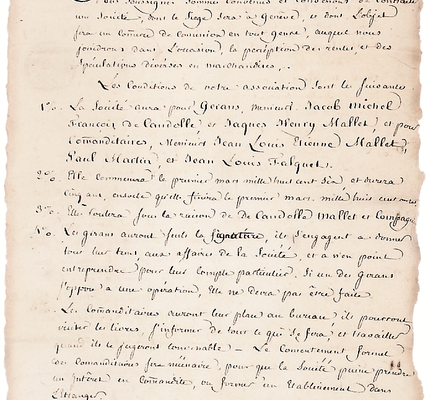 soussignés sommes convenus et convenons de contracter
une Société, dont le siège sera à Genève, et dont l'objet
sera un comerce de comission en tout genre, auquel nous
joindrons dans l'occasion, la perception des rentes, et des
spéculations diverses en marchandises, .
Les Conditions de notre association sont les suivantes
1º. La Société aura pour Gérans, messieurs Jacob Michel
François de Candolle, et Jaques Henry Mallet, et pour
Comanditaires, Messieurs Jean Louis Etienne Mallet,
Paul Martin, et Jean Louis Falquet.
2º. Elle commencera le premier mars mille huit cent six, et durera
cinq ans, ensorte qu'elle finira le premier mars mille huit cent onze.
3º. Elle roulera sous la raison de de Candolle Mallet et Compagnie
4º. Les gérans auront seuls la signature, ils s'engagent à donner
tout leur tems aux affaires de la Société, et à n'en point
entreprendre pour leur compte particulier. Si un des Gérans
s'oppose à une opération, Elle ne devra pas être faite
Les Comanditaires auront leur place au bureau, ils pourront
visiter les livres, s'informer de tout ce qui se fera, et travailler
quand ils le jugeront convenable — Le Consentement formel
des Comanditaires sera nécessaire, pour que la Société puisse prendre
un Intérêt en Comandite, ou former un Etablissement dans
l'Etranger